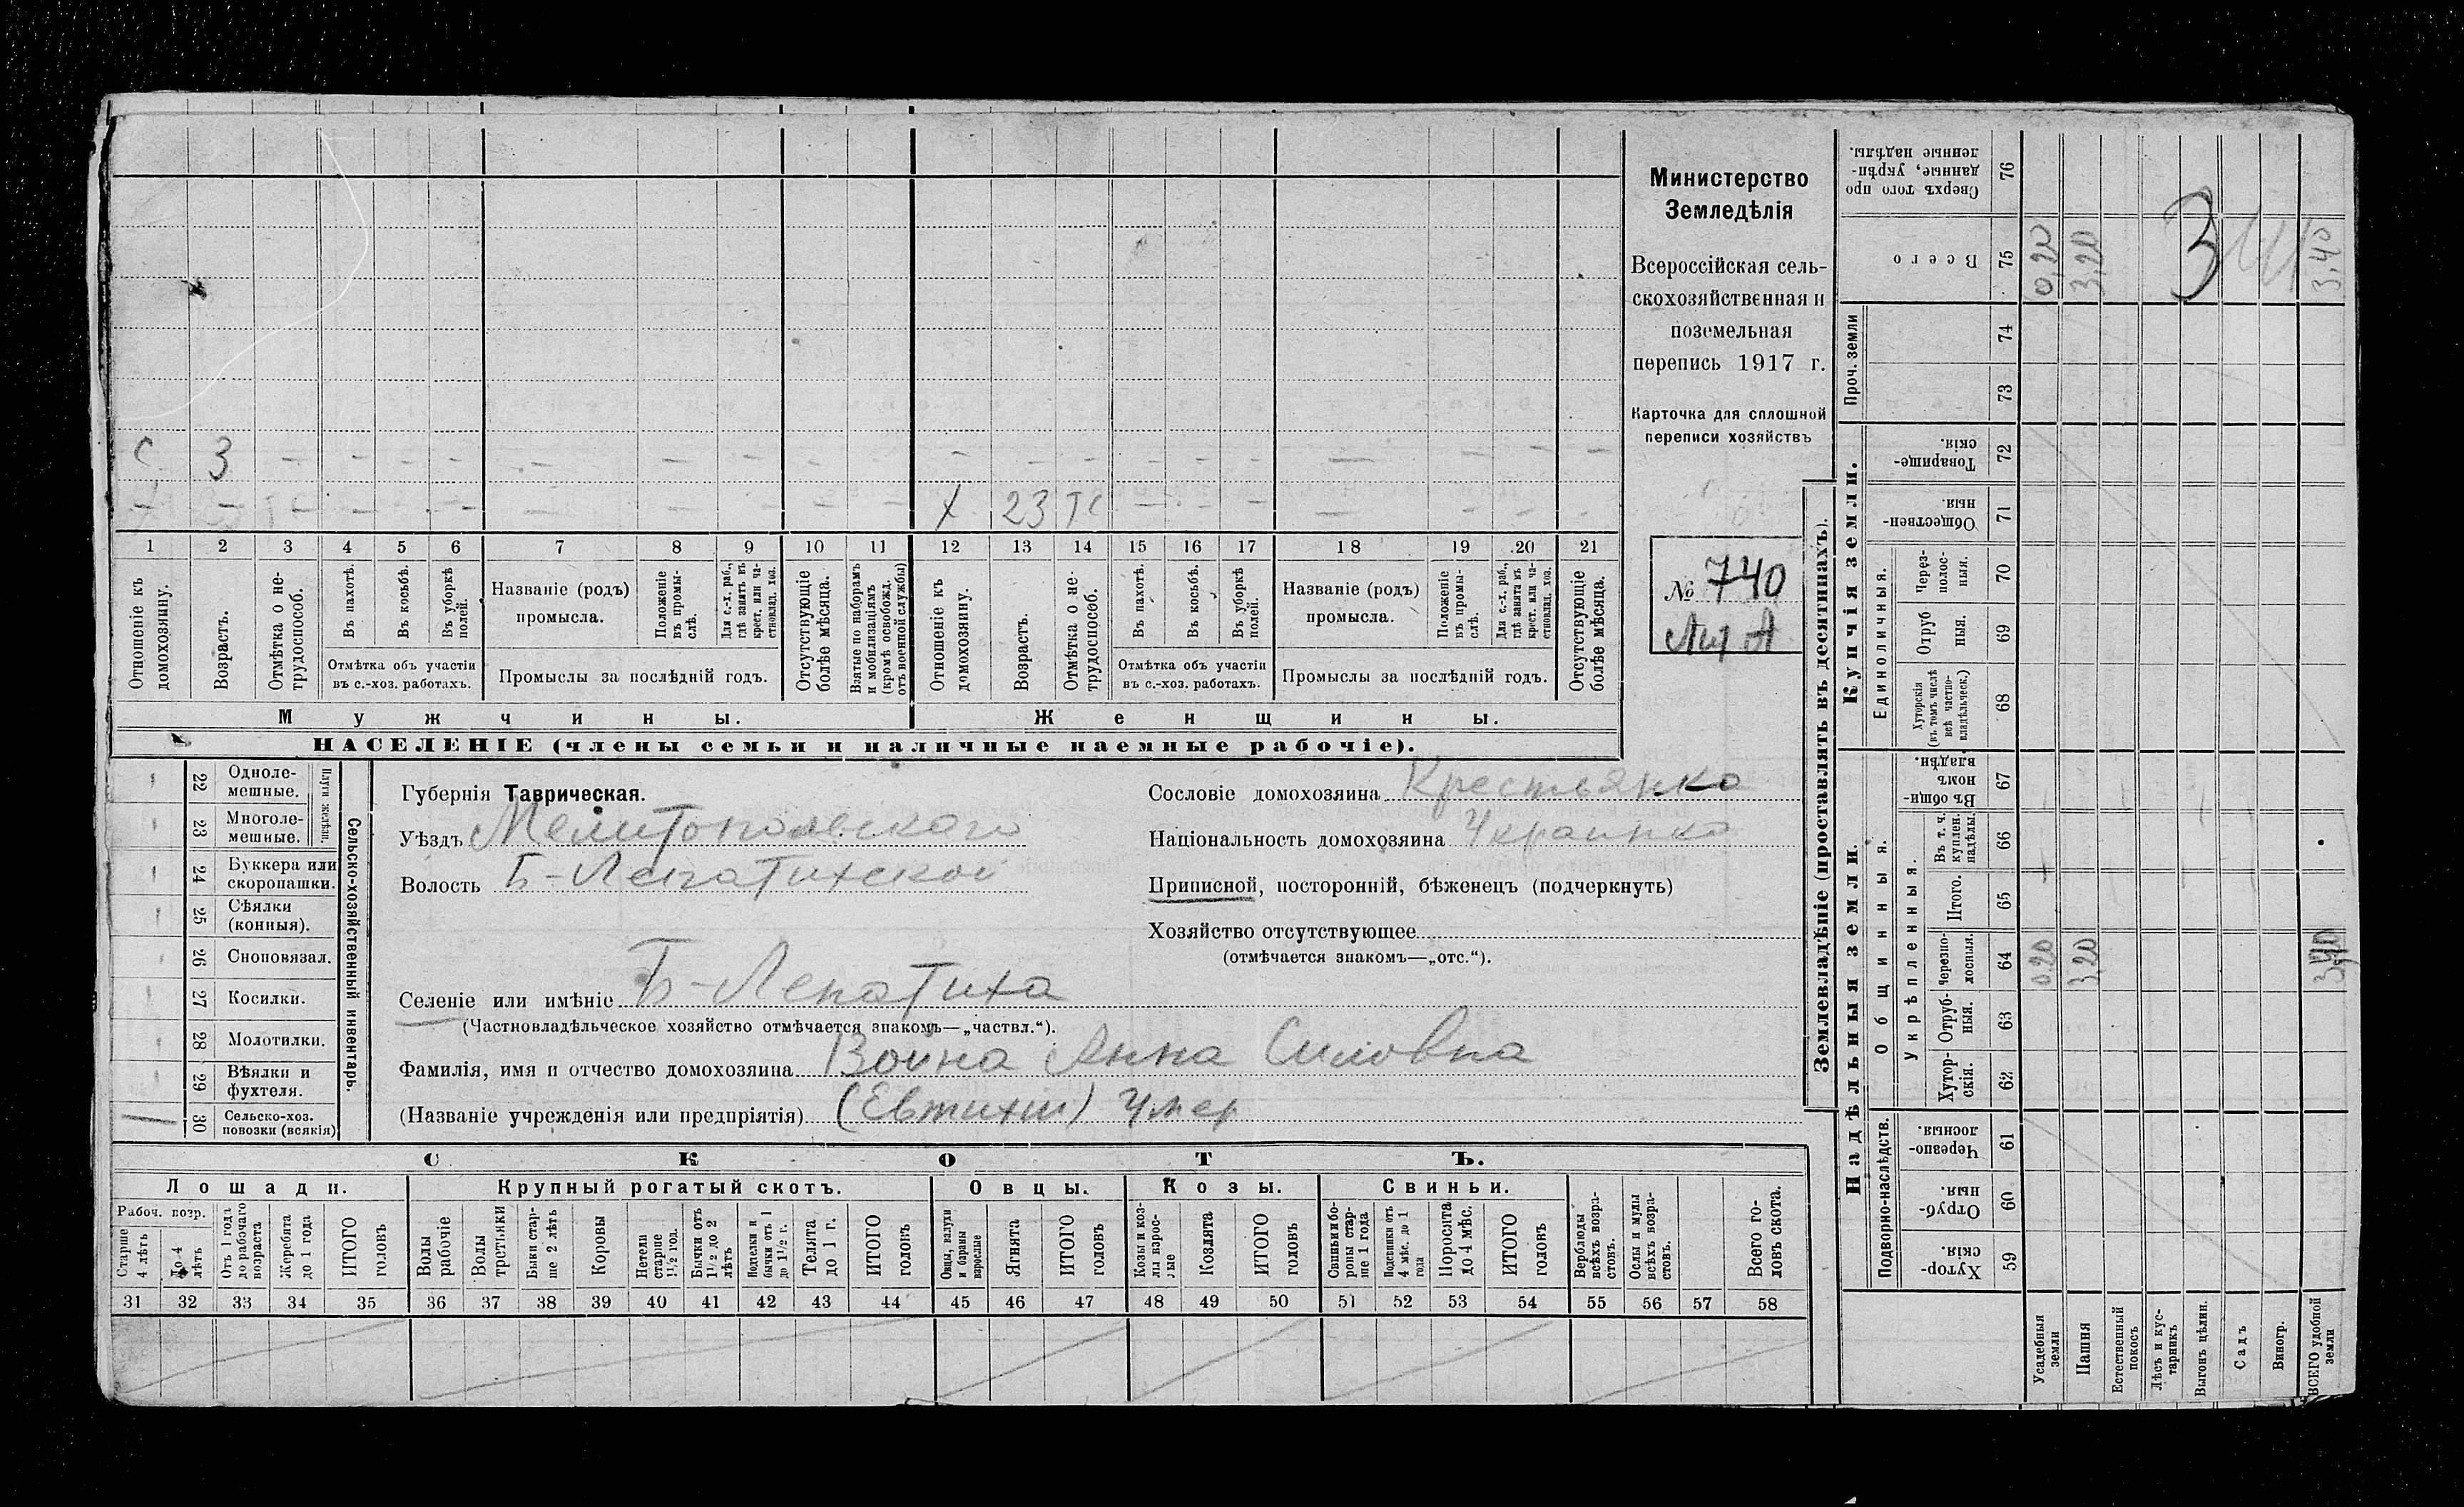 с 3 — — — — — — — — — — — — — — — — — — —
— — — — — — — — — — — х 23 тс — — — — — — —
1 2 3 4 5 6 7 8 9 10 11 12 13 14 15 16 17 18 19 20 21
Отношеніе къ домохозяину.
Возрастъ.
Отмѣтка о не-трудоспособ.
Въ пахотѣ.
Въ косьбѣ.
Въ уборкѣ полей.
Отмѣтка объ участіи
въ с.-хоз. работахъ.
Названіе (родъ)
промысла.
Положеніе въ промы-слѣ.
Для с.-х. раб., гдѣ занятъ въ крест. или ча-стновлад. хоз.
Промыслы за послѣдній годъ.
Отсутствующіе болѣе мѣсяца.
Взятые по наборамъ и мобилизаціямъ (кромѣ освобожд. отъ военной службы)
Отношеніе къ домохозяину.
Возрастъ.
Отмѣтка о не-трудоспособ.
Въ пахотѣ.
Въ косьбѣ.
Въ уборкѣ полей.
Отмѣтка объ участіи
въ с.-хоз. работахъ.
Названіе (родъ)
промысла.
Положеніе въ промы-слѣ.
Для с.-х. раб., гдѣ занята въ крест. или ча-стновлад. хоз.
Промыслы за послѣдній годъ.
Отсутствующіе болѣе мѣсяца.
Мужчины.
Женщины.
НАСЕЛЕНІЕ (члены семьи и наличные наемные рабочіе).
Министерство
Земледѣлія
Всероссійская сель-
скохозяйственная и
поземельная
перепись 1917 г.
Карточка для сплошной
переписи хозяйствъ
№ 740
Лит А
22 Одноле-мешные.
23 Многоле-мешные.
Плуги желѣзн.
24 Буккера или скоропашки.
25 Сѣялки (конныя).
26 Сноповязал.
27 Косилки.
28 Молотилки.
29 Вѣялки и фухтеля.
30 Сельско-хоз. повозки (всякія)
Сельско-хозяйственный инвентарь.
Губернія Таврическая.
Уѣздъ Мелитопольского
Волость Б-Лепатихской
Сословіе домохозяина Крестьянка
Національность домохозяина Украинка
Приписной, посторонній, бѣженецъ (подчеркнуть)
Хозяйство отсутствующее
(отмѣчается знакомъ—„отс.“).
Селеніе или имѣніе Б-Лепатиха
(Частновладѣльческое хозяйство отмѣчается знакомъ—„частвл.“).
Фамилія, имя и отчество домохозяина Война Анна Силовна
(Названіе учрежденія или предпріятія) (Евтихий) Умер
СКОТЪ.
Лошади.
Крупный рогатый скотъ.
Овцы.
Козы.
Свиньи.
Рабоч. возр.
Старше 4 лѣтъ
До 4 лѣтъ
Отъ 1 года до рабочаго возраста
Жеребята до 1 года
ИТОГО головъ
Волы рабочіе
Волы третьяки
Быки стар-ше 2 лѣтъ
Коровы
Нетели старше 1½ год.
Бычки отъ 1½ до 2 лѣтъ
Подтелки и бычки отъ 1 до 1½ г.
Телята до 1 г.
ИТОГО головъ
Овцы, валухи и бараны взрослые
Ягнята
ИТОГО головъ
Козы и коз-лы взрос-лые
Козлята
ИТОГО головъ
Свиньи и бо-ровы стар-ше 1 года
Подсвинки отъ 4 мѣс. до 1 года
Поросята до 4 мѣс.
ИТОГО головъ
Верблюды всѣхъ возра-стовъ.
Ослы и мулы всѣхъ возра-стовъ.
Всего го-ловъ скота.
31 32 33 34 35 36 37 38 39 40 41 42 43 44 45 46 47 48 49 50 51 52 53 54 55 56 57 58
Землевладѣніе (проставлять въ десятинахъ).
Надѣльныя земли.
Купчія земли.
Проч. земли
Подворно-наслѣдств.
Общинныя.
Укрѣпленныя.
Единоличныя.
Сверхъ того про данные, укрѣп-ленные надѣлы. 76
Всего 75 0,20 3,20 3 3,40
74
73
Товарище-скія. 72
Обществен-ныя 71
Через-полос-ныя. 70
Отруб ныя. 69
Хуторскія (въ томъ числѣ всѣ частно-владѣльческ.) 68
Въ общи-номъ владѣн. 67
Въ т. ч. куплен. надѣлы. 66
Итого. 65
Черезпо-лосныя. 64 0,20 3,20 3,40
Отруб-ныя. 63
Хутор-скія. 62
Черезпо-лосныя. 61
Отруб-ныя. 60
Хутор-скія. 59
Усадебныя земли
Пашня
Естественный покосъ
Лѣсъ и кус-тарникъ
Выгонъ цѣлин.
Садъ
Виногр.
ВСЕГО удобной земли